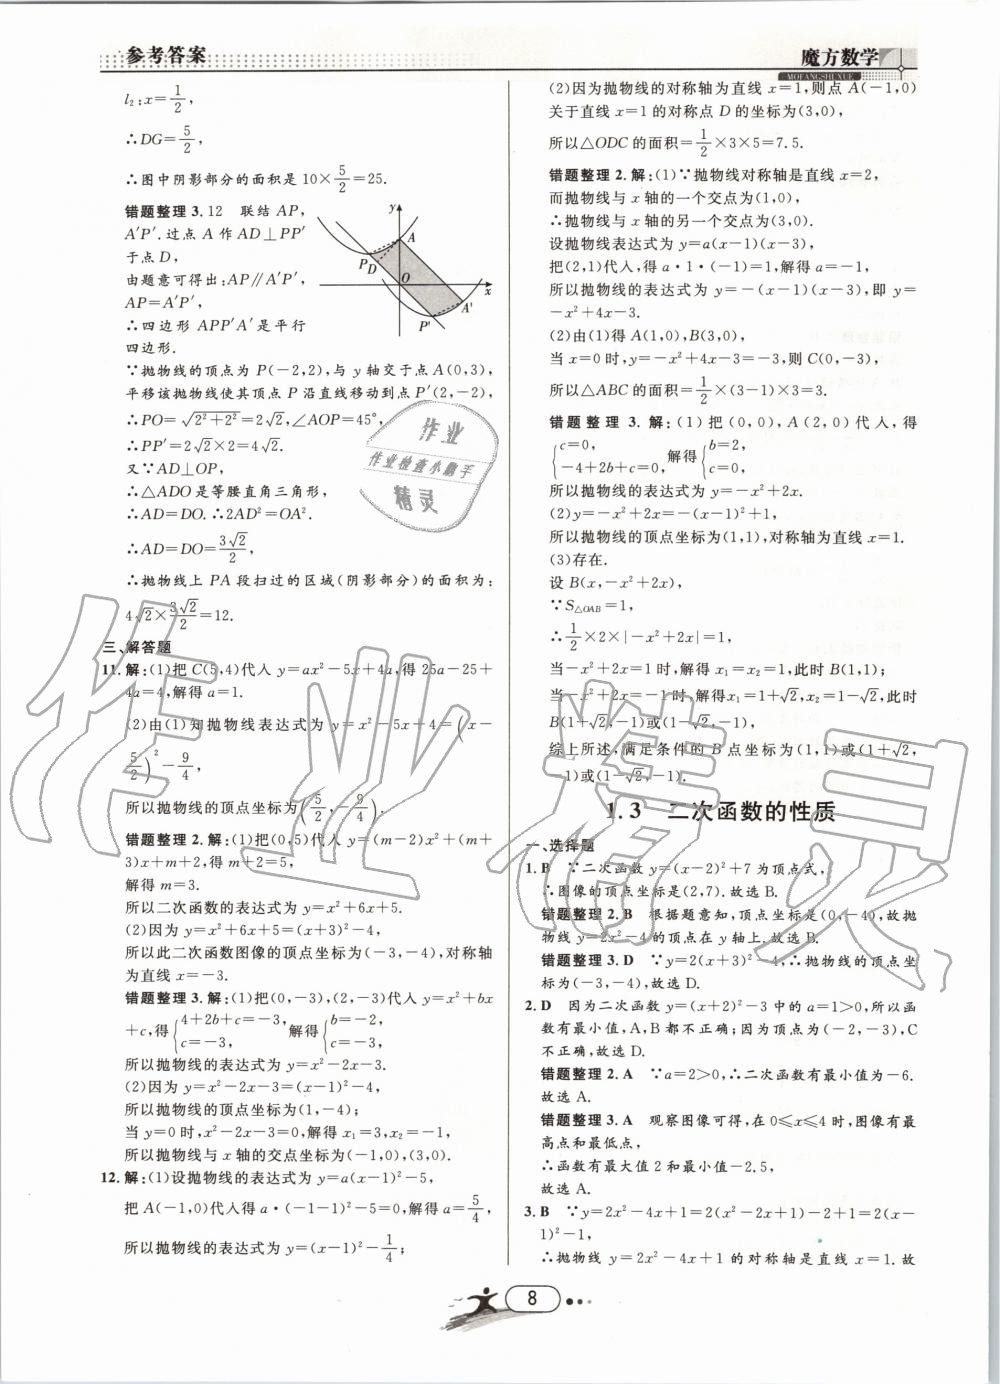 参考答案
魔方数学
MOFANGSHUXUE
l₂:x=1/2,
∴DG=5/2,
∴图中阴影部分的面积是 10×5/2=25.
错题整理 3. 12 联结 AP,
A′P′.过点 A 作 AD⊥PP′
于点 D,
由题意可得出:AP∥A′P′,
AP=A′P′,
∴四边形 APP′A′是平行
四边形.
y
A
P
D
O
x
A′
P′
∵抛物线的顶点为 P(-2,2),与 y 轴交于点 A(0,3),
平移该抛物线使其顶点 P 沿直线移动到点 P′(2,-2),
∴PO=√(2²+2²)=2√2,∠AOP=45°,
∴PP′=2√2×2=4√2.
又∵AD⊥OP,
∴△ADO 是等腰直角三角形,
∴AD=DO.∴2AD²=OA².
∴AD=DO=3√2/2,
∴抛物线上 PA 段扫过的区域(阴影部分)的面积为:
4√2×3√2/2=12.
三、解答题
11. 解:(1)把 C(5,4)代入 y=ax²-5x+4a,得 25a-25+
4a=4,解得 a=1.
(2)由(1)知抛物线表达式为 y=x²-5x+4=(x-
5/2)²-9/4,
所以抛物线的顶点坐标为(5/2,-9/4).
错题整理 2. 解:(1)把(0,5)代入 y=(m-2)x²+(m+
3)x+m+2,得 m+2=5,
解得 m=3.
所以二次函数的表达式为 y=x²+6x+5.
(2)因为 y=x²+6x+5=(x+3)²-4,
所以此二次函数图像的顶点坐标为(-3,-4),对称轴
为直线 x=-3.
错题整理 3. 解:(1)把(0,-3),(2,-3)代入 y=x²+bx
+c,得{4+2b+c=-3, c=-3, 解得{b=-2, c=-3,
所以抛物线的表达式为 y=x²-2x-3.
(2)因为 y=x²-2x-3=(x-1)²-4,
所以抛物线的顶点坐标为(1,-4);
当 y=0 时,x²-2x-3=0,解得 x₁=3,x₂=-1,
所以抛物线与 x 轴的交点坐标为(-1,0),(3,0).
12. 解:(1)设抛物线的表达式为 y=a(x-1)²-5,
把 A(-1,0)代入得 a·(-1-1)²-5=0,解得 a=5/4,
所以抛物线的表达式为 y=(x-1)²-1/4;
(2)因为抛物线的对称轴为直线 x=1,则点 A(-1,0)
关于直线 x=1 的对称点 D 的坐标为(3,0),
所以△ODC 的面积=1/2×3×5=7.5.
错题整理 2. 解:(1)∵抛物线对称轴是直线 x=2,
而抛物线与 x 轴的一个交点为(1,0),
∴抛物线与 x 轴的另一个交点为(3,0).
设抛物线表达式为 y=a(x-1)(x-3),
把(2,1)代入,得 a·1·(-1)=1,解得 a=-1,
所以抛物线的表达式为 y=-(x-1)(x-3),即 y=
-x²+4x-3.
(2)由(1)得 A(1,0),B(3,0),
当 x=0 时,y=-x²+4x-3=-3,则 C(0,-3),
所以△ABC 的面积=1/2×(3-1)×3=3.
错题整理 3. 解:(1)把(0,0),A(2,0)代入,得
{c=0, -4+2b+c=0, 解得{b=2, c=0,
所以抛物线的表达式为 y=-x²+2x.
(2)y=-x²+2x=-(x-1)²+1,
所以抛物线的顶点坐标为(1,1),对称轴为直线 x=1.
(3)存在.
设 B(x,-x²+2x),
∵S△OAB=1,
∴1/2×2×|-x²+2x|=1,
当-x²+2x=1 时,解得 x₁=x₂=1,此时 B(1,1);
当-x²+2x=-1 时,解得x₁=1+√2,x₂=1-√2,此时
B(1+√2,-1)或(1-√2,-1),
综上所述,满足条件的 B 点坐标为(1,1)或(1+√2,
-1)或(1-√2,-1).
1.3 二次函数的性质
一、选择题
1. B ∵二次函数 y=(x-2)²+7 为顶点式,
∴图像的顶点坐标是(2,7).故选 B.
错题整理 2. B 根据题意知,顶点坐标是(0,-4),故抛
物线 y=2x²-4 的顶点在 y 轴上.故选 B.
错题整理 3. D ∵y=2(x+3)²-4,∴抛物线的顶点坐
标为(-3,-4),故选 D.
2. D 因为二次函数 y=(x+2)²-3 中的 a=1>0,所以函
数有最小值,A,B 都不正确;因为顶点为(-2,-3),C
不正确,故选 D.
错题整理 2. A ∵a=2>0,∴二次函数有最小值为-6.
故选 A.
错题整理 3. A 观察图像可得,在 0≤x≤4 时,图像有最
高点和最低点,
∴函数有最大值 2 和最小值-2.5,
故选 A.
3. B ∵y=2x²-4x+1=2(x²-2x+1)-2+1=2(x-
1)²-1,
∴抛物线 y=2x²-4x+1 的对称轴是直线 x=1. 故
8
作业
作业检查小助手
精灵
作业精灵